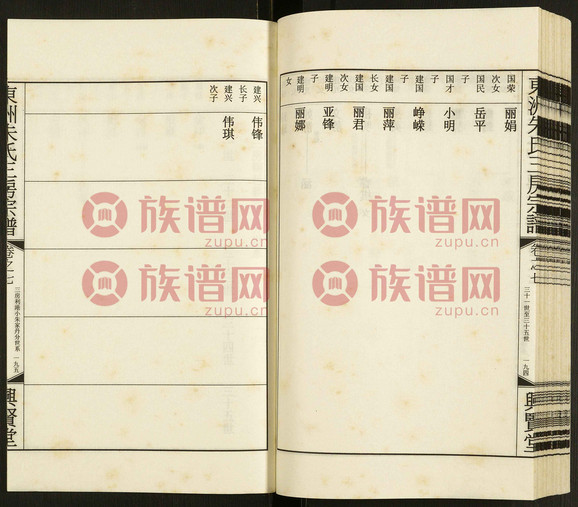 東洲朱氏三房宗譜
卷之七
三十一世至三十五世
一九四
興賢堂
国荣
次女
丽娟
国民
子
岳平
国才
子
小明
建国
子
峥嵘
建国
长女
丽萍
建国
次女
丽君
建明
子
亚锋
建明
女
丽娜
建兴
长子
伟锋
建兴
次子
伟琪
東洲朱氏三房宗譜
卷之七
三房利港小朱家丹分世系
一九五
興賢堂
族谱网
zupu.cn
族谱网
zupu.cn
族谱网
zupu.cn
族谱网
zupu.cn